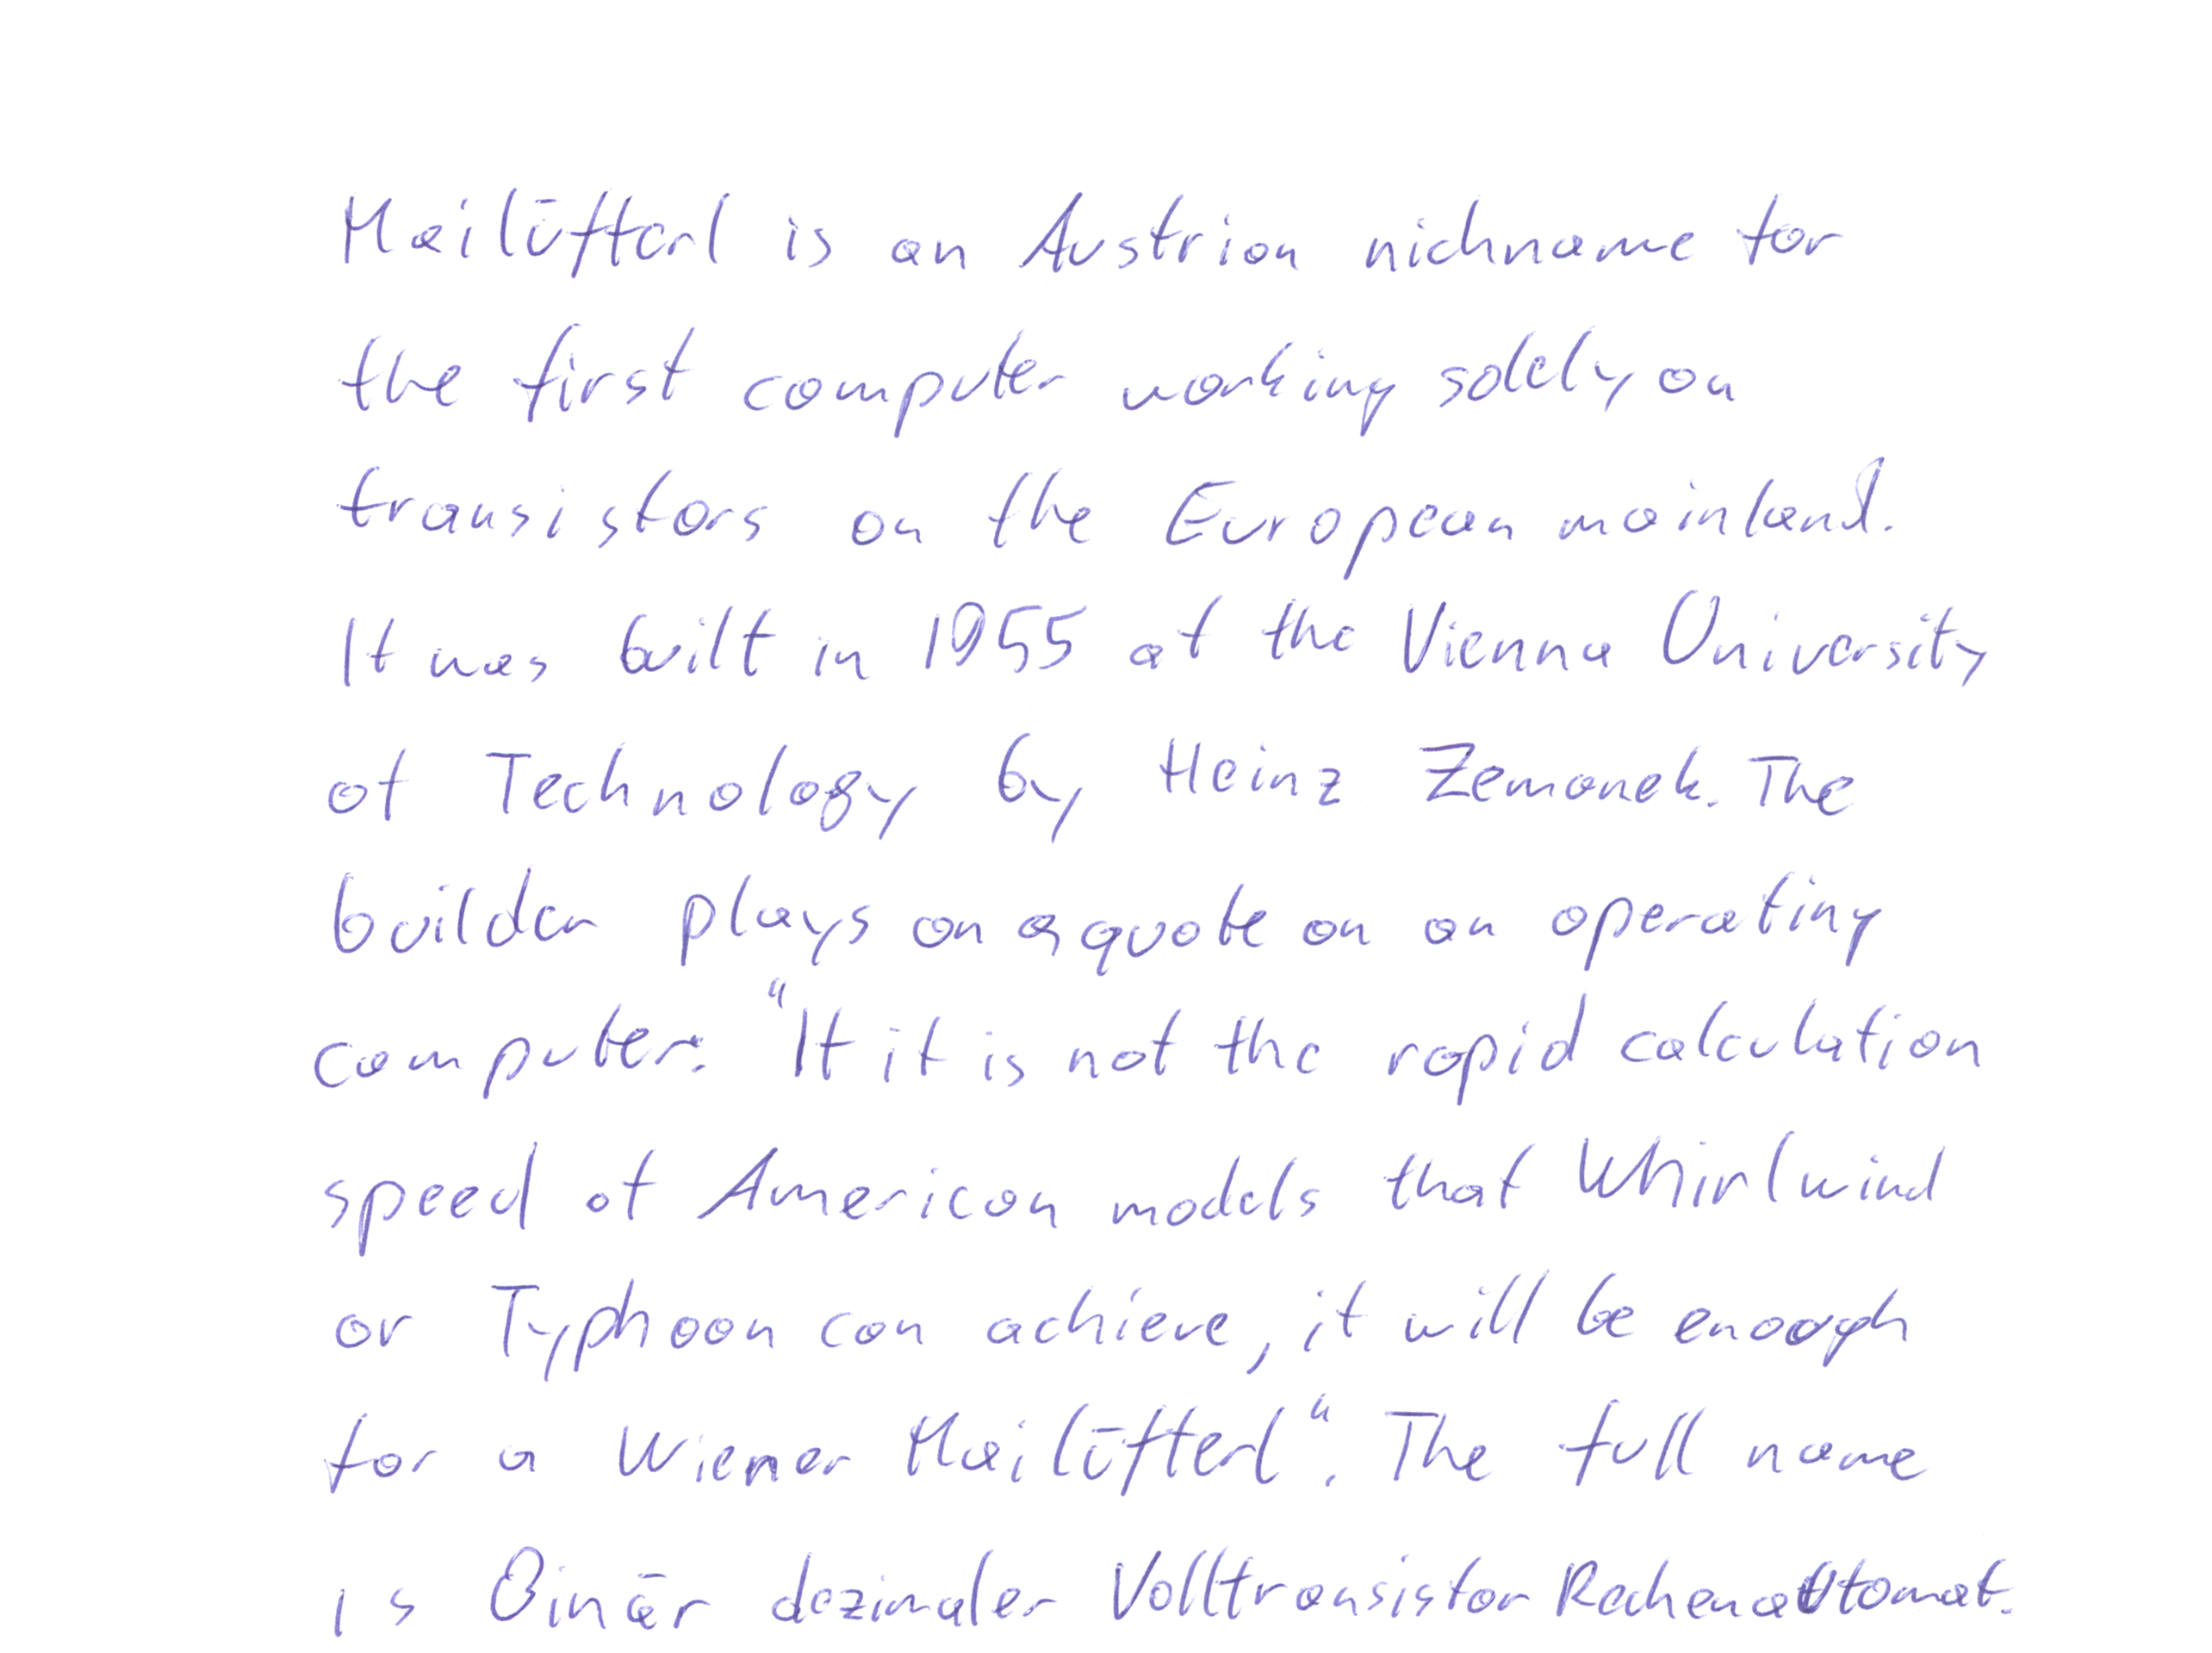 Mailüfterl is an Austrian nickname for
the first computer working solely on
transistors on the European mainland.
It was built in 1955 at the Vienna University
of Technology by Heinz Zemanek. The
builder plays on a quote on an operating
computer: "If it is not the rapid calculation
speed of American models that Whirlwind
or Typhoon can achieve, it will be enough
for a Wiener Mailüfterl". The full name
is Binär dezimaler Volltransistor Rechenautomat.